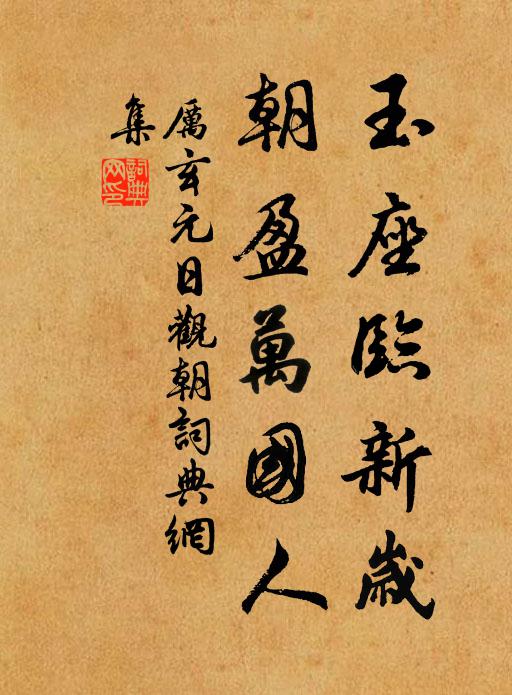 玉座臨新歲
朝盈萬國人
厲玄元日觀朝詞典網
集
詞典
网印